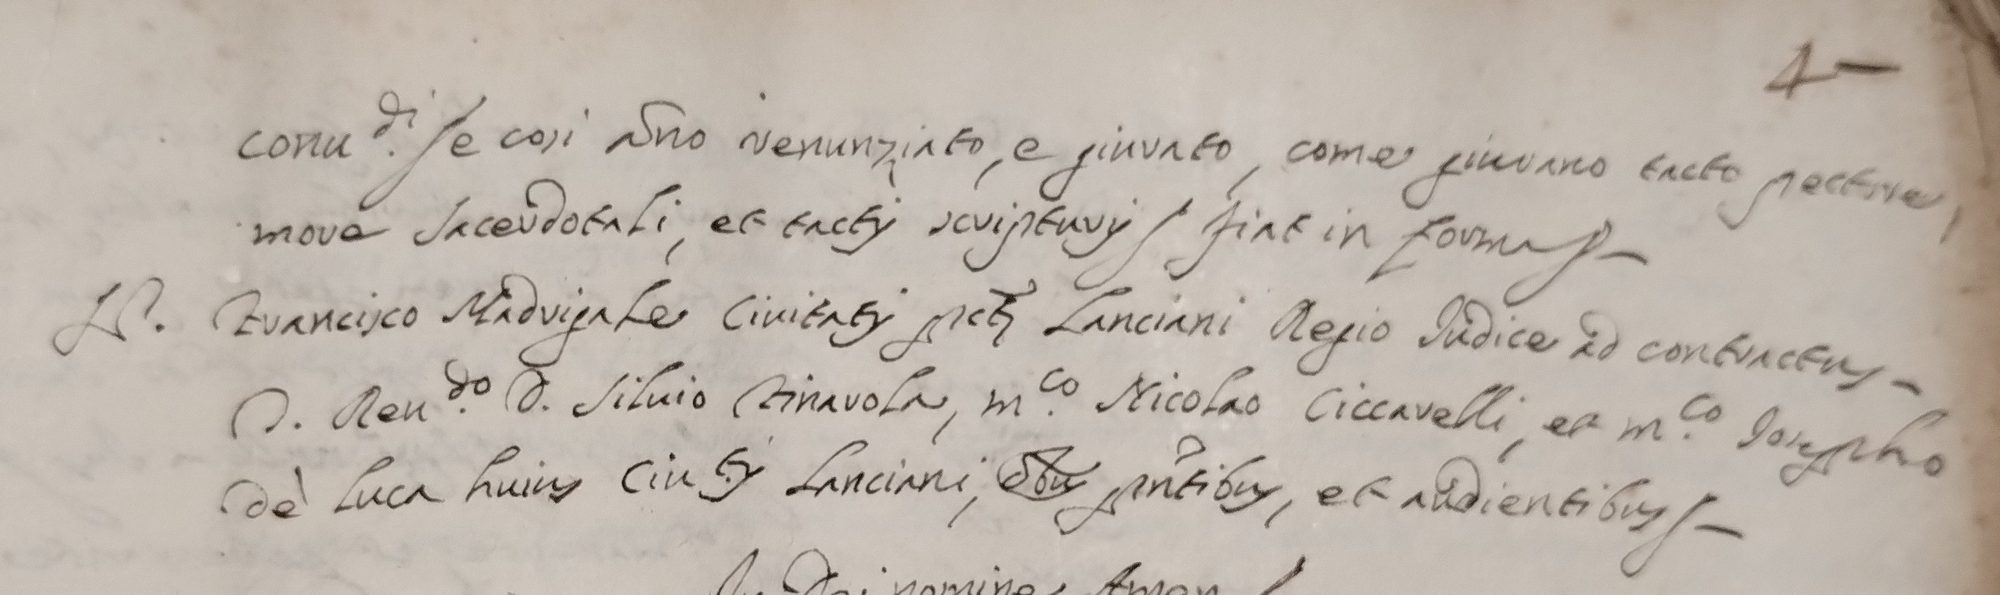 4
conu.di se così ãno renunziato, e giurato, come giurano tacto pectore,
more sacerdotali, et tactis scripturis fiat in forma
Francisco Madrigale Civitatis pctæ Lanciani Regio Judice ad contractus
D. Reu.do D. Siluio Tinarola, m.co Nicolao Ciccarelli, et m.co Josepho
dè Luca huius Ciu.tis Lanciani, pñtibus, et audientibus
In Dei nomine Amen